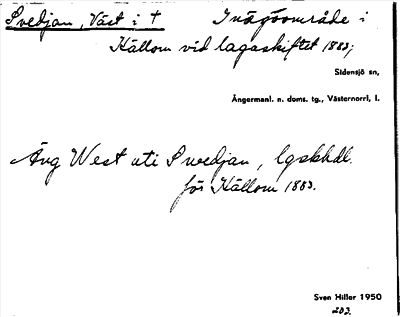 Svedjan, Väst i † Inägoområde i
Källom vid lagaskiftet 1883;
Sidensjö sn,
Ångermanl. n. doms. tg., Västernorrl. l.
Äng West uti Swedjan, lgskhdl.
för Källom 1883.
Sven Hiller 1950
203.